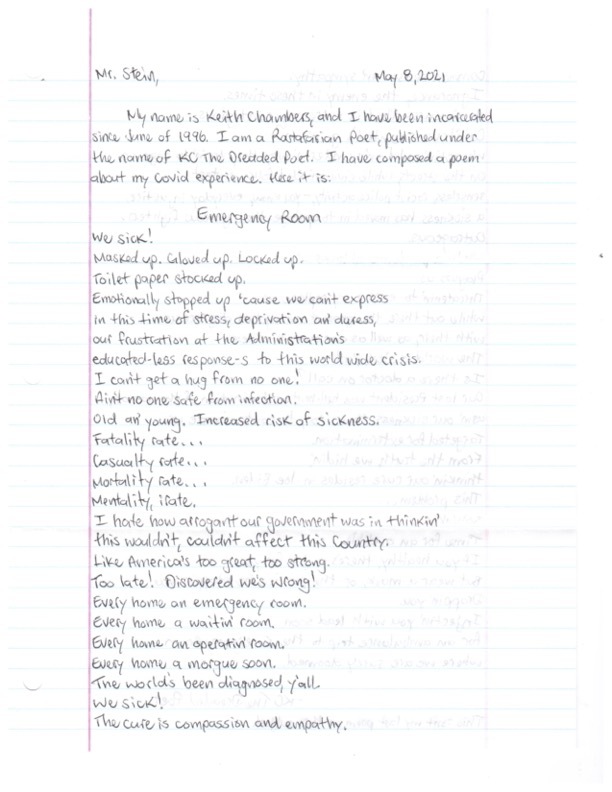 Mr. Stein, May 8, 2021
My name is Keith Chambers, and I have been incarcerated
since June of 1996. I am a Rastafarian Poet, published under
the name of KC The Dreadded Poet. I have composed a poem
about my Covid experience. Here it is:
Emergency Room
We sick!
Masked up. Gloved up. Locked up.
Toilet paper stocked up.
Emotionally stopped up 'cause we can't express
in this time of stress, deprivation an' duress,
our frustration at the Administration's
educated-less response-s to this world wide crisis.
I can't get a hug from no one!
Ain't no one safe from infection.
Old an' young. Increased risk of sickness.
Fatality rate...
Casualty rate...
Mortality rate...
Mentality, irate.
I hate how arrogant our government was in thinkin'
this wouldn't, couldn't affect this Country.
Like America's too great, too strong.
Too late! Discovered we's wrong!
Every home an emergency room.
Every home a waitin' room.
Every home an operatin' room.
Every home a morgue soon.
The world's been diagnosed, y'all.
We sick!
The cure is compassion and empathy.